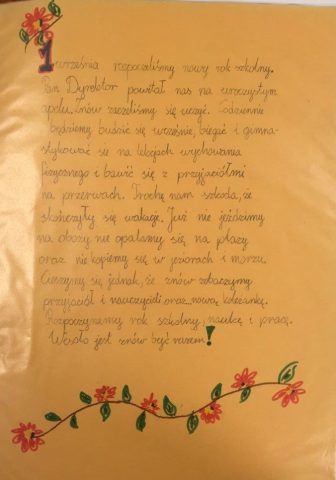 1 września rozpoczeliśmy nowy rok szkolny.
Pan Dyrektor powitał nas na uroczystym
apelu. Znów zaczeliśmy się uczyć. Codziennie
będziemy budzić się wcześnie, biegać i gimna-
stykować się na lekcjach wychowania
fizycznego i bawić się z przyjaciółmi
na przerwach. Trochę nam szkoda, że
skończyły się wakacje. Już nie jeździmy
na obozy nie opalamy się na plaży
oraz nie kąpiemy się w jeziorach i morzu.
Cieszymy się jednak, że znów zobaczymy
przyjaciół i nauczycieli oraz nową koleżankę.
Rozpoczynamy rok szkolny, naukę i pracę.
Wesoło jest znów być razem!